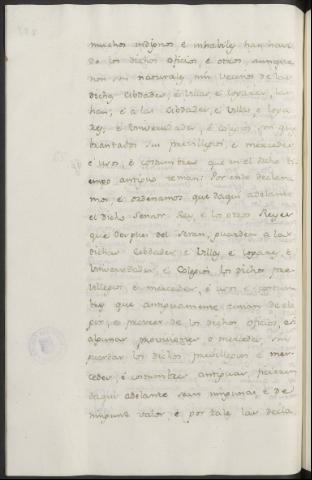 muchos indignos e inhabiles han havido
de los dichos oficios e otros, aunque
non sei naturales, nin vecinos de las
dichas Cibdades, e Villas, e Logares, las
han; e a las Cibdades, e Villas, e Loga
res, e Universidades, e Colegios, son que
brantados sus previllegios, e mercedes
e usos, e costumbres que en el dicho ti
empo antiguo tenian: Por ende declara
mos e ordenamos que daqui adelante
el dicho Señor Rey, e los otros Reyes
que despues del seran, guarden a las
dichas Cibdades, e Villas, e Logares, e
Universidades, e Colegios, los dichos, pre
villegios, e mercedes, e usos e costum
bres que antiguamente tenian de ele
gir, e proveer de los dichos oficios, e si
algunas provisiones o mercedes sin
guardar los dichos previllegios e mer
cedes, e costumbres antiguas, ficieren
daqui adelante sean ningunas, e de
ningund valor, e por tales las decla